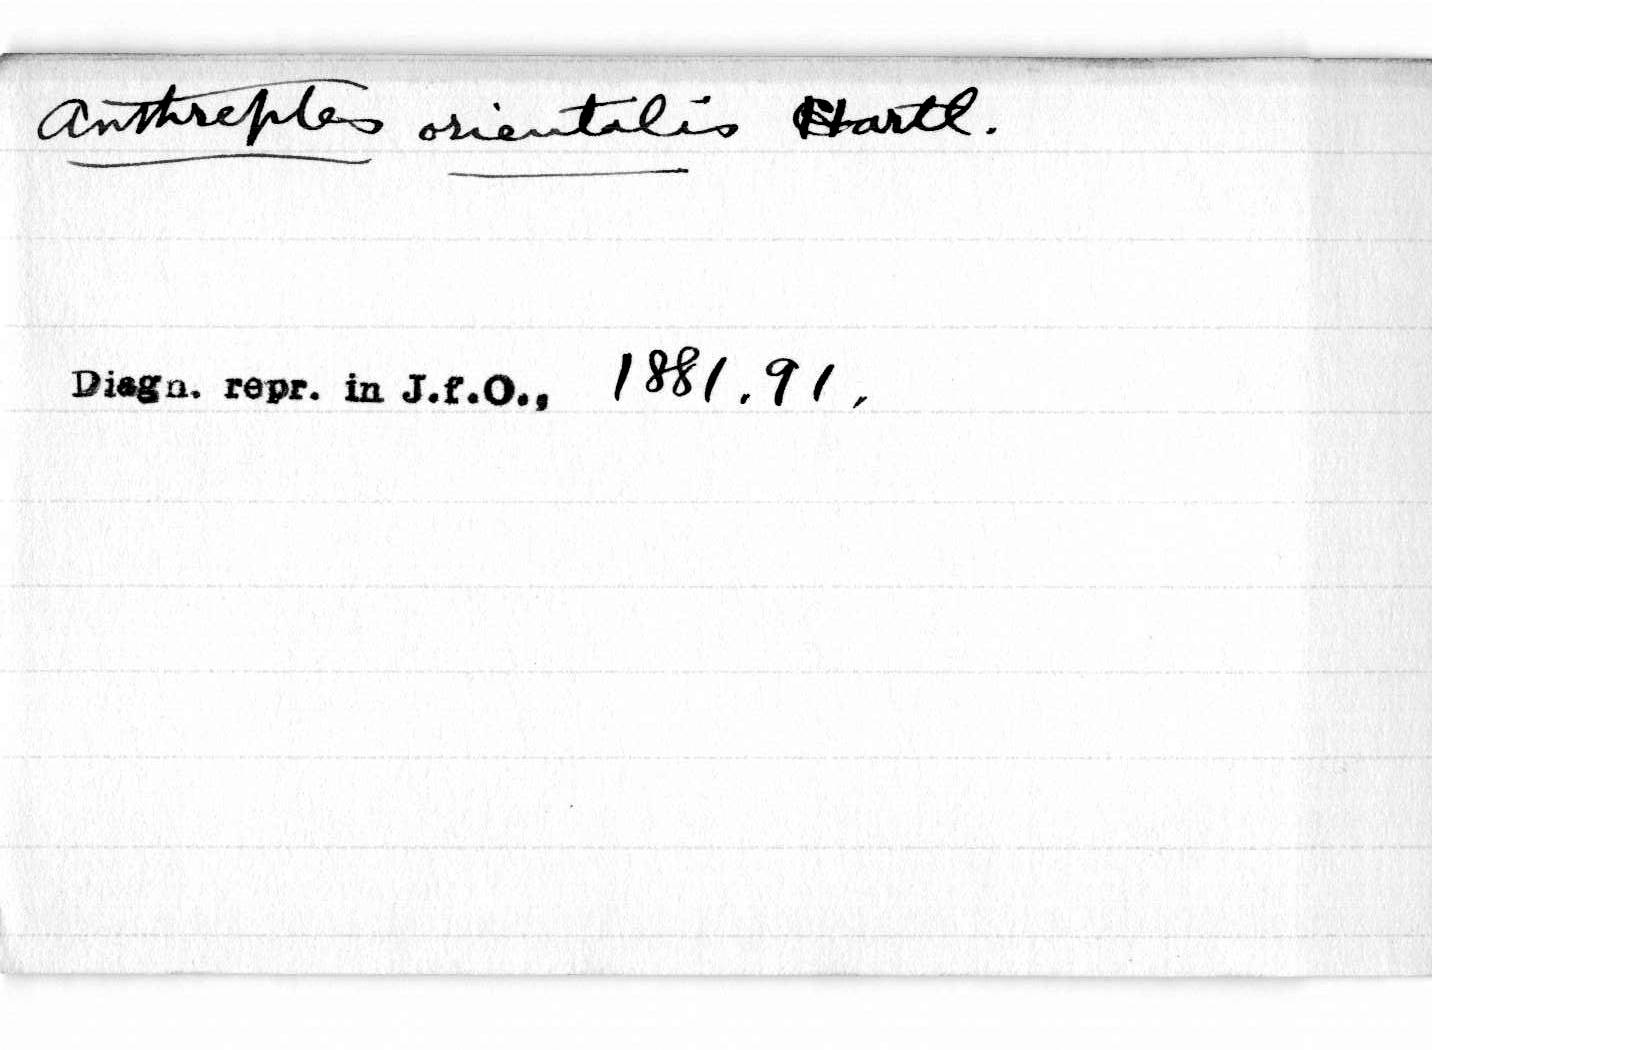 Anthreptes orientalis Hartl.
Diagn. repr. in J.f.O., 1881, 91,